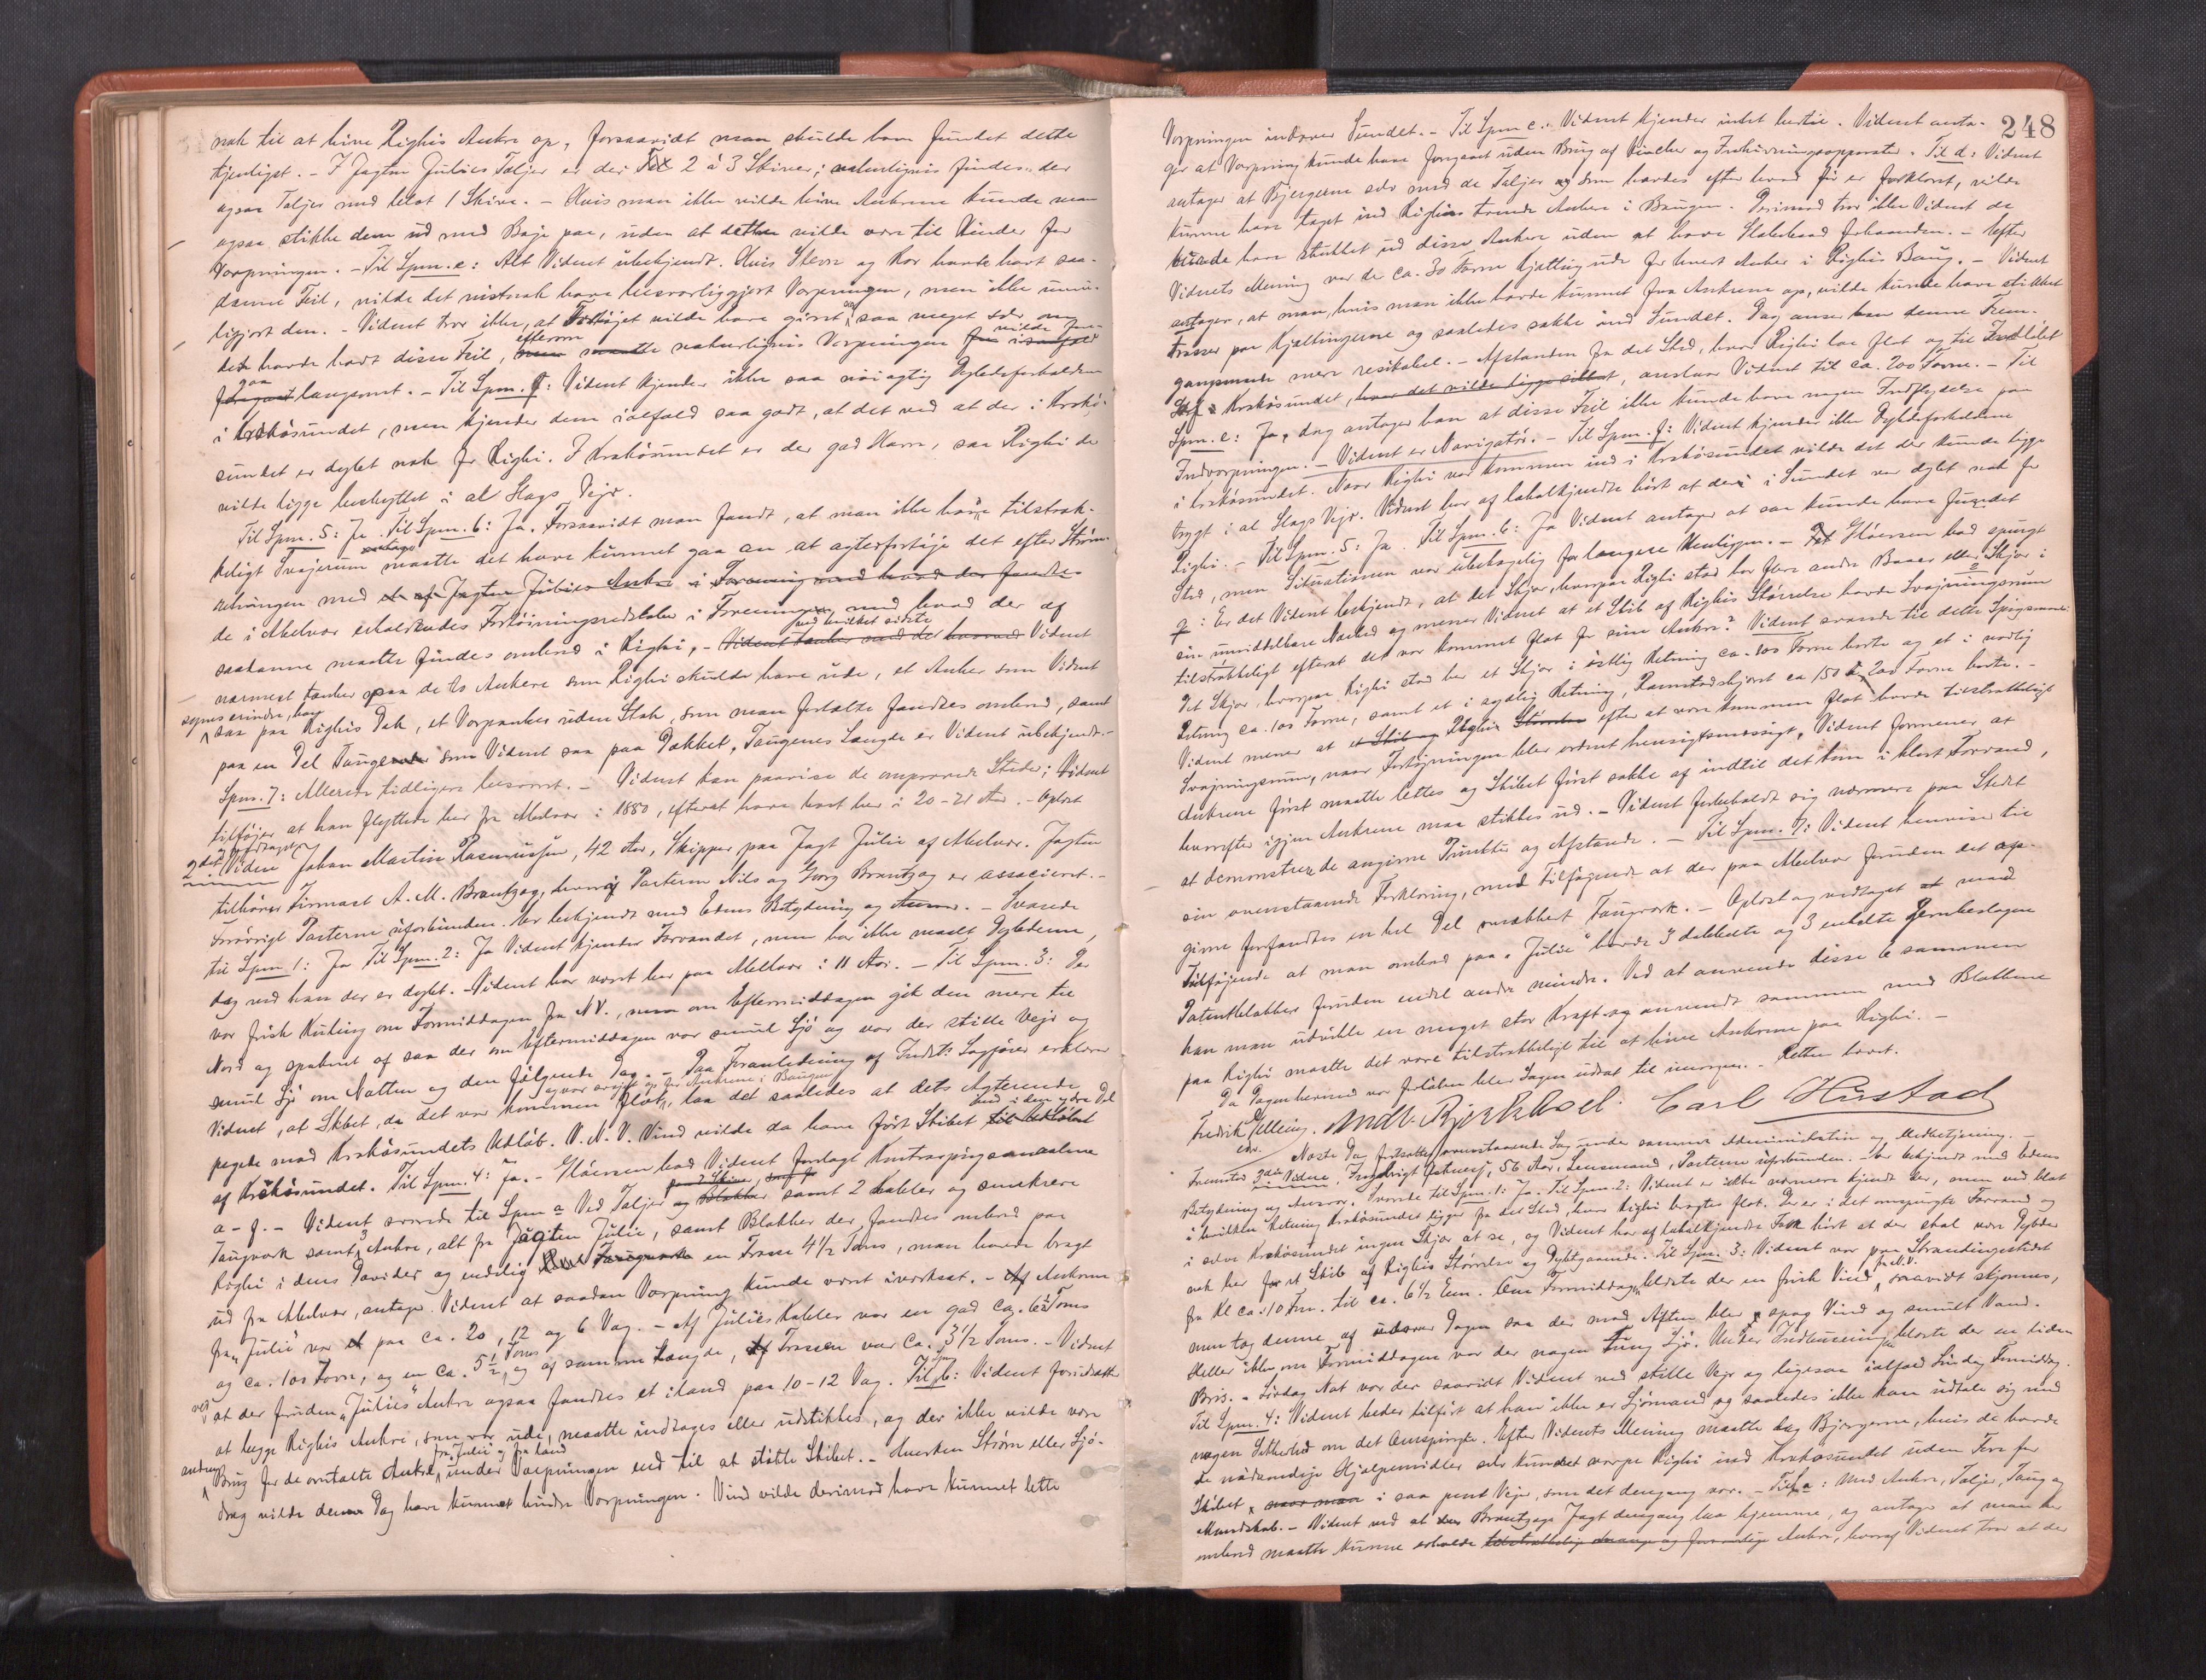 nok til at hive Righis Ankre op, forsaavidt man skulde have fundet dette
tjenligst. - I Jagten Julies Taljer er der 2 á 3 Skiver; naturligvis findes der
ogsaa Taljer med blot 1 Skive. - Hvis man ikke vilde hive Ankrene kunde man
ogsaa stikke dem ud med Boje paa, uden at dette vilde være til Hinder for
Varpningen. - Til Spm. e: Alt Vidnet ubekjendt. Hvis Stevn og Ror havde havt saa-
danne Feil, vilde det vistnok have besværliggjort Varpningen, men ikke umu-
liggjort den. - Vidnet tror ikke, at Fartøjet vilde have giret saa meget selv om
det havde havt disse Feil, efterom naturligvis Varpningen vilde fore-
gaa langsomt. - Til Spm. f: Vidnet kjender ikke saa nøiagtig Dybdeforholdene
i Krakøsundet, men kjender dem ialfald saa godt, at det ved at der i Krakø-
sundet er dybt nok for Righi. I Krakøsundet er der god Havn, saa Righi der
vilde ligge beskyttet i al Slags Vejr.
Til Spm. 5: Ja. Til Spm. 6: Ja. Forsaavidt man fandt, at man ikke havde tilstræk-
keligt Svajerum maatte det have kunnet gaa an at agterfortøje det efter Strøm-
sætningen med et af Jagten Julies Ankre i Forening med hvad der fandtes
de i Medvær erholdendes Fortøiningsredskaber i Foreningen med hvad der af
saadanne maatte findes ombord i Righi, - med hvilket sidste Vidnet
nærmest tænker paa de to Ankere som Righi skulde have ude, et Anker som Vidnet
synes erindre, han saa paa Righis Dæk, et Varpanker uden Stok, som man fortalte fandtes ombord, samt
paa en Del Tauge som Vidnet saa paa Dækket. Taugenes Længde er Vidnet ubekjendt. -
Spm. 7: Allerede tidligere besvaret. - Vidnet kan paavise de omprovede Steder; Vidnet
tilføjer at han flyttede her fra Medvær i 1880, efterat have boet her i 20-21 Aar. - Oplæst
vedtaget
2det Vidne Johan Martin Rasmussen, 42 Aar, Skipper paa Jagt Julie af Medvær. Jagten
tilhører Firmaet A. M. Brantzæg, hvori Parterne Nils og Georg Brantzæg er associeret. -
Forøvrigt Parterne uforbunden. Er bekjendt med Edens Betydning og Ansvar. - Svarede
til Spm 1: Ja Til Spm. 2: Ja Vidnet kjender Farvandet, men har ikke maalt Dybderne,
dog ved han der er dybt. - Vidnet har været her paa Medvær i 11 Aar. - Til Spm. 3: Der
var frisk Kuling om Formiddagen fra NV., men om Eftermiddagen gik den mere til
Nord og spaknet af saa der om Eftermiddagen var smul Sjø og var der stille Vejr og
smul Sjø om Natten og den følgende Dag. - Paa Foranledning af Indst: Sagfører erklærer
Vidnet, at Skibet, da det var kommen flot, laa det saaledes at dets Agterende
pegede mod Krakøsundets Udløb. V. N. V. Vind vilde da have ført Skibet ind i den ydre Del
af Krakøsundet. Til Spm. 4: Ja. - Gløersen bad Vidnet forelagt Kontraspørgsmaalene
a-g. - Vidnet svarede til Spm a Ved Taljer og Blokker samt 2 Kabler og smekrere
Taugværk samt 3 Ankre, alt fra Jagten Julie, samt Blokker der fandtes ombord paa
Righi i dens Davider og endelig en Trosse 4½ Toms, man havde bragt
ud fra Medvær, antager Vidnet at saadan Varpning kunde været iværksat. - Af Ankrene
fra "Julie" var et paa ca. 20, 12 og 6 Vog. - Af Julies Kabler var en god ca. 6½ Toms
og ca. 100 Favn, og en ca. 5½ Toms og af samme Længde, Trossen var ca. 3½ Toms. - Vidnet
ved at der foruden "Julies" Ankre ogsaa fandtes et iland paa 10-12 Vog. Til Spm b: Vidnet forudsætter
at begge Righis Ankre, som var ude, maatte indtages eller udstikkes, og der ikke vilde være
anden Brug for de omtalte Ankre fra Julie og fra Land under Varpningen end til at støtte Skibet. - Hverken Strøm eller Sjø-
drag vilde denne Dag have kunnet hindre Varpningen. Vind vilde derimod have kunnet lette
248
Varpningen indover Sundet. - Til Spm c.: Vidnet kjender intet hertil. Vidnet anta-
ger at Varpning kunde have foregaaet uden Brug af Vincher og Indhivningsapparater. Til d: Vidnet
antager at Bjergerne selv med de Taljer som havdes efter hvad før er forklaret, vilde
kunne have taget ind Righis tvende Ankre i Baugen. Derimod tror ikke Vidnet de
kunde have stukket ud disse Ankre uden at have Slæbebaad forhaanden. - Efter
Vidnets Mening var de ca. 30 Favne Kjætting ude for hvert Anker i Righis Baug. - Vidnet
antager, at man, hvis man ikke havde kunnet faa Ankrene op, vilde kunde have stikket
Trosser paa Kjættingerne og saaledes sakke ind Sundet. Dog anser han denne Frem-
gangsmaade mere resikabel. - Afstanden fra det Sted, hvor Righi laa flot og til Indløbet
af Krakøsundet, anslaar Vidnet til ca. 200 Favne. - Til
Spm. e: Ja, dog antager han at disse Feil ikke kunde have nogen Indflydelse paa
Indvarpningen. - Vidnet er Navigatør. - Til Spm. f: Vidnet kjender ikke Dybdeforholdene
i Krakøsundet. Naar Righi var kommen ind i Krakøsundet vilde det der kunde ligge
trygt i al Slags Vejr. Vidnet har af lokalkjendte hørt at der i Sundet var dybt nok for
Righi. - Til Spm. 5: Ja. Til Spm. 6: Ja Vidnet antager at saa kunde have fundet
Sted, men Situationen var ubehagelig for længere Henliggen. - Gløersen bad spurgt
g: Er det Vidnet bekjendt, at det Skjær, hvorpaa Righi stod har flere andre Baaer eller Skjær i
sin umiddelbare Nærhed og mener Vidnet at et Skib af Righis Størrelse havde Svajningsrum
tilstrækkeligt efterat det var kommet flot for sine Ankre? Vidnet svarede til dette Spørgsmaal:
Det Skjær, hvorpaa Righi stod har et Skjær i østlig Retning ca. 100 Favne borte og et i nordlig
Retning ca. 100 Favne, samt et i sydlig Retning, Ramstadskjæret ca 150 à 200 Favne borte. -
Vidnet mener at Righi efter at være kommen flot havde tilstrækkeligt
Svajningsrum, naar Fortøjningen blev ordnet hensigtsmæssigt. Vidnet formener at
Ankrene først maatte lettes og Skibet først sakke af indtil det kom i klart Farvand,
hvorefter igjen Ankrene maa stikkes ud. - Vidnet forbeholdt sig nærmere paa Stedet
at demonstrere de angivne Punkter og Afstande. - Til Spm. 7: Vidnet henviser til
sin ovenstaaende Forklaring, med Tilføjende at der paa Medvær foruden det op-
givne forfandtes en hel Del omækket Taugværk. - Oplæst og vedtaget med
Tilføjende at man ombord paa "Julie" havde 3 dobbelte og 3 enkelte Jernbeslagne
Patentblokker foruden endel andre mindre. Ved at anvende disse 6 sammen
kan man udvikle en meget stor Kraft og anvendt sammen med Blokkene
paa Righi maatte det være tilstrækkeligt til at hive Ankrene paa Righi. -
Da Dagen hermed var forløben blev Sagen udsat til imorgen. - Retten hævet.
Fredrik Selling. Andr. Bjerkhoel. Carl Hustad
Næste Dag fortsattes ovenstaaende Sag under samme Administration og Medbetjening. -
Fremstod 3die Vidne, 56 Aar, Lensmand, Parterne uforbunden. - Er bekjendt med Edens
Betydning og Ansvar. Svarede til Spm. 1: Ja. Til Spm. 2: Vidnet er ikke nærmere kjendt her, men ved blot
i hvilken Retning Krakøsundet ligger fra det Sted, hvor Righi bragtes flot. Der er i det omspurgte Farvand og
i selve Krakøsundet ingen Skjær at se, og Vidnet har af lokalkjendte Folk hørt at der skal være Dybder
nok her for et Skib af Righis Størrelse og Dybtgaaende. Til Spm. 3: Vidnet var paa Strandingsstedet
fra Kl ca. 10 Fm. til ca. 6½ Em. Om Formiddagen blæste der en frisk Vind fra N.V. saavidt skjønnes,
men tog denne af udover Dagen saa der mod Aften blev spag Vind og smult Vand.
Heller ikke om Formiddagen var der nogen Sjø. Under Indbuxering blæste der en liden
Bris. - Lørdag Nat var der saavidt Vidnet ved stille Vejr og ligesaa ialfald Søndag Formiddag.
Til Spm. 4: Vidnet beder tilført at han ikke er Sjømand og saaledes ikke kan udtale sig med
nogen Sikkerhed om det Omspurgte. Efter Vidnets Mening maatte dog Bjergerne, hvis de havde
de nødvendige Hjælpemidler selv kundet varpe Righi ind Krakøsundet uden Fare for
Skibet i saa pent Vejr, som det dengang var. - Til a: Med Ankre, Taljer, Taug og
Mandskab. - Vidnet ved at Brantzægs Jagt dengang laa hjemme, og antager at man her
ombord maatte kunne erholde tilstrækkelig mange og forsvarlige Ankre, hvoraf Vidnet tror at der